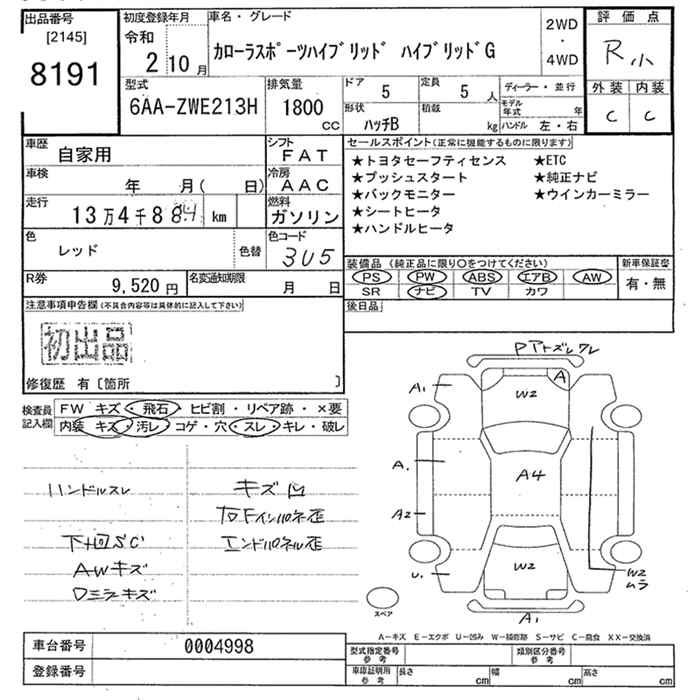 出品番号
[2145]
8191
初度登録年月
令和
2 10 月
車名・グレード
カローラスポーツハイブリッド ハイブリッドG
2WD
・
4WD
評価点
R 小
外装 内装
C C
型式
6AA-ZWE213H
排気量
1800
CC
ドア
5
定員
5 人
形状
ハッチB
積載
kg
ディーラー・並行
モデル
年式
年
ハンドル 左・右
車歴
自家用
シフト
FAT
車検
年 月( 日)
冷房
AAC
走行
13万4千884 km
燃料
ガソリン
色
レッド
色替
色コード
3U5
R券
9,520 円
名変通知期限
月 日
セールスポイント(正常に機能するものに限ります)
★トヨタセーフティセンス ★ETC
★プッシュスタート ★純正ナビ
★バックモニター ★ウインカーミラー
★シートヒータ
★ハンドルヒータ
装備品 (純正品に限り○をつけてください)
PS PW ABS エアB AW
SR ナビ TV カワ
新車保証書
有・無
後日品
注意事項申告欄(不具合内容等は具体的に記入して下さい)
初出品
修復歴 有〔箇所 〕
検査員
記入欄
FW キズ・飛石・ヒビ割・リペア跡・×要
内装 キズ・汚レ・コゲ・穴・スレ・キレ・破レ
ハンドルスレ
下回SC
AWキズ
ロミラーキズ
キズ凹
右Fインパネ歪
エンドパネル歪
PアトズレワレA
W2
A1
A
A.
A2
A4
U.
W2
W2
ムラ
A1
スペア
A-キズ E-エクボ U-凹み W-補修跡 S-サビ C-腐食 XX-交換済
車台番号
0004998
登録番号
型式指定番号
参考
類別区分番号
参考
車庫証明用
参考
長さ cm 幅 cm 高さ cm